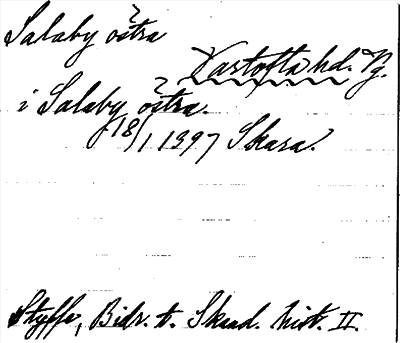 Salaby östra
Vartofta hd. Vg.
i Salaby östra.
18/1 1397 Skara.
Styffe, Bidr. t. Skand. hist. II.